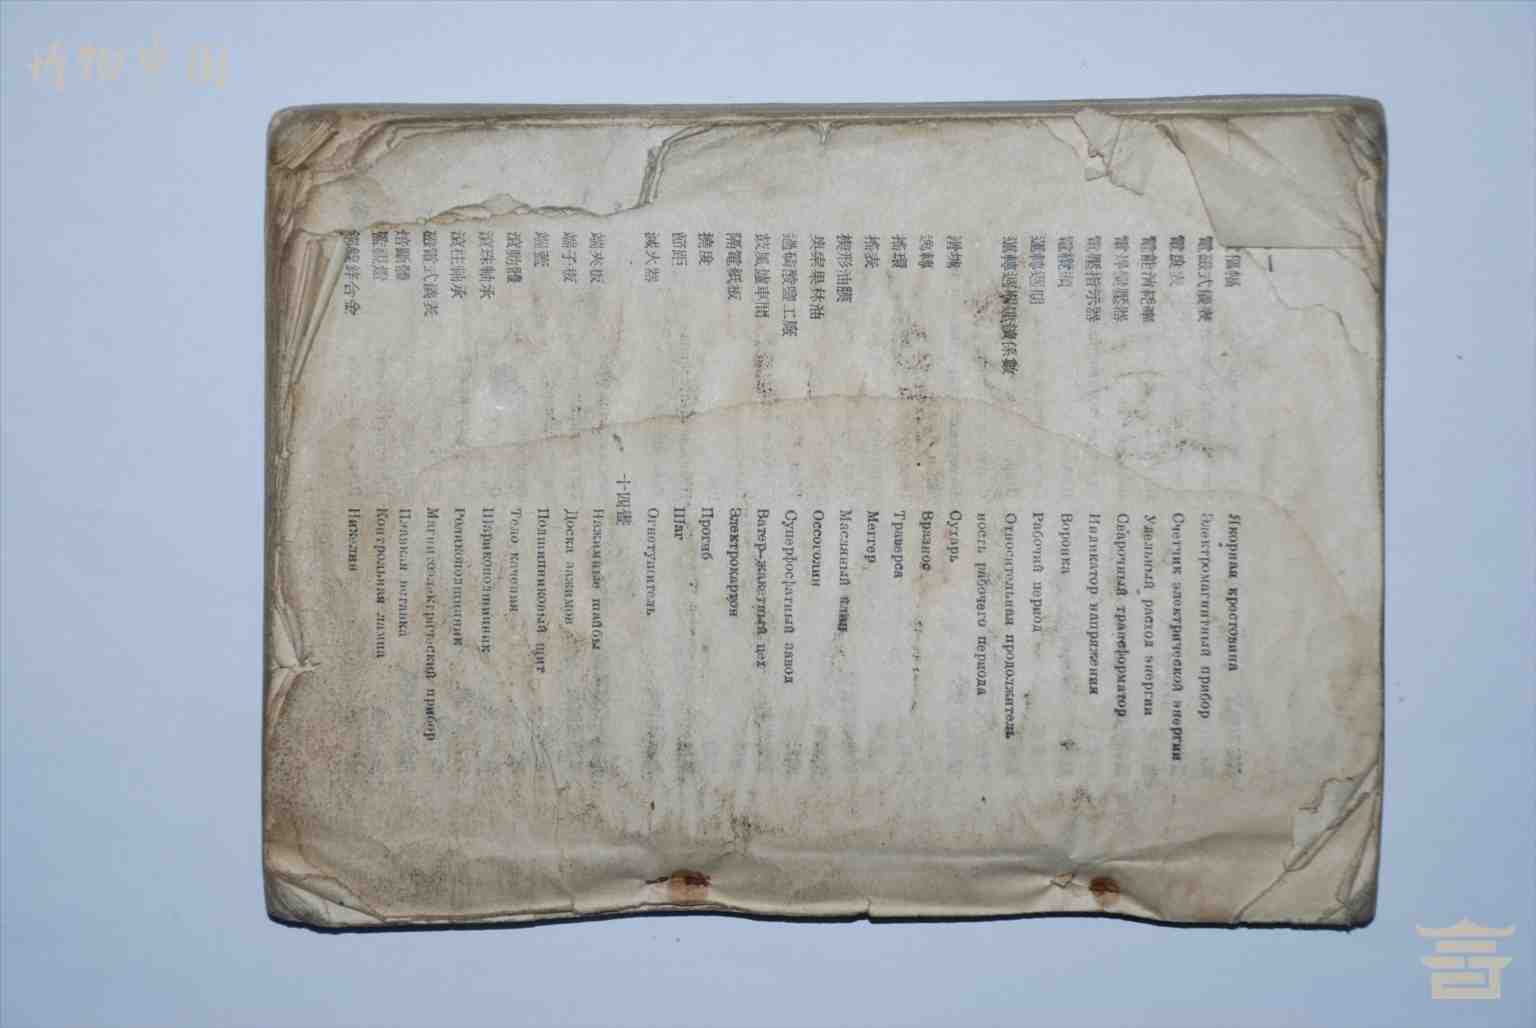 博物中国
Якорная крестовина
電磁式儀表 Электромагнитный прибор
電度表 Счетчик электрической энергии
電能消耗率 Удельный расход энергии
電焊變壓器 Сварочный трансформатор
電壓指示器 Индикатор напряжения
電纜頭 Воронка
運轉週期 Рабочий период
運轉週期連續係數 Относительная продолжитель
ность рабочего периода
滑塊 Сухарь
逸轉 Вразнос
搖環 Траверса
搖表 Меггер
楔形油膜 Масляный клин
奥索果林油 Оссоголин
過磷酸鹽工廠 Суперфосфатный завод
鼓風爐車間 Ватер-жакетный цех
隔電紙板 Электрокартон
撓度 Прогиб
節距 Шаг
滅火器 Огнетушитель
十四畫
端夾板 Нажимные шайбы
端子板 Доска зажимов
端蓋 Подшипниковый щит
滾動體 Тело качения
滾珠軸承 Шарикоподшипник
滾柱軸承 Роликоподшипник
磁電式儀表 Магнитоэлектрический прибор
熔斷體 Плавкая вставка
監視燈 Контрольная лампа
鋅合金 Никелин